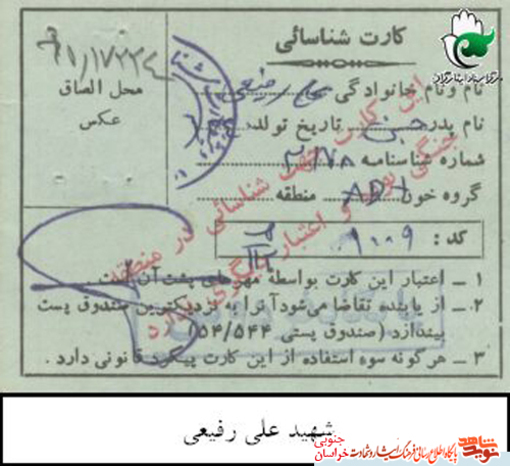 کارت شناسائی
۹۱/۱۷۲۳۴
محل الصاق
عکس
نام و نام خانوادگی علی رفیعی
نام پدر حسن تاریخ تولد
شماره شناسنامه ۲/۱۷۸
گروه خون AB+ منطقه
کد : ۹۰۰۹
این کارت جهت شناسائی در منطقه
جنگی بوده و اعتبار دیگری ندارد
۱ ـ اعتبار این کارت بواسطهٔ مهرهای پشت آن است
۲ ـ از یابنده تقاضا می‌شود آنرا به نزدیکترین صندوق پست
بیندازد (صندوق پستی ۵۴/۵۴۴)
۳ ـ هرگونه سوء استفاده از این کارت پیگرد قانونی دارد .
شهید علی رفیعی
نوید شاهد
پایگاه اطلاع رسانی فرهنگ ایثار و شهادت
خراسان جنوبی